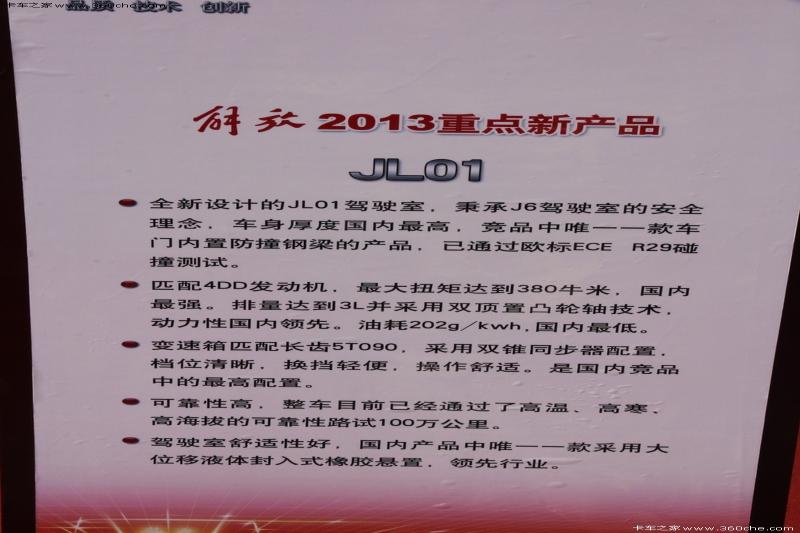 卡车之家 www.360che.com
品质 技术 创新
解放 2013重点新产品
JL01
全新设计的JL01驾驶室，秉承J6驾驶室的安全
理念，车身厚度国内最高，竞品中唯一一款车
门内置防撞钢梁的产品，已通过欧标ECE R29碰
撞测试。
匹配4DD发动机，最大扭矩达到380牛米，国内
最强。排量达到3L并采用双顶置凸轮轴技术，
动力性国内领先。油耗202g/kwh,国内最低。
变速箱匹配长齿5T090，采用双锥同步器配置，
档位清晰，换挡轻便，操作舒适。是国内竞品
中的最高配置。
可靠性高，整车目前已经通过了高温、高寒、
高海拔的可靠性路试100万公里。
驾驶室舒适性好，国内产品中唯一一款采用大
位移液体封入式橡胶悬置，领先行业。
卡车之家 www.360che.com